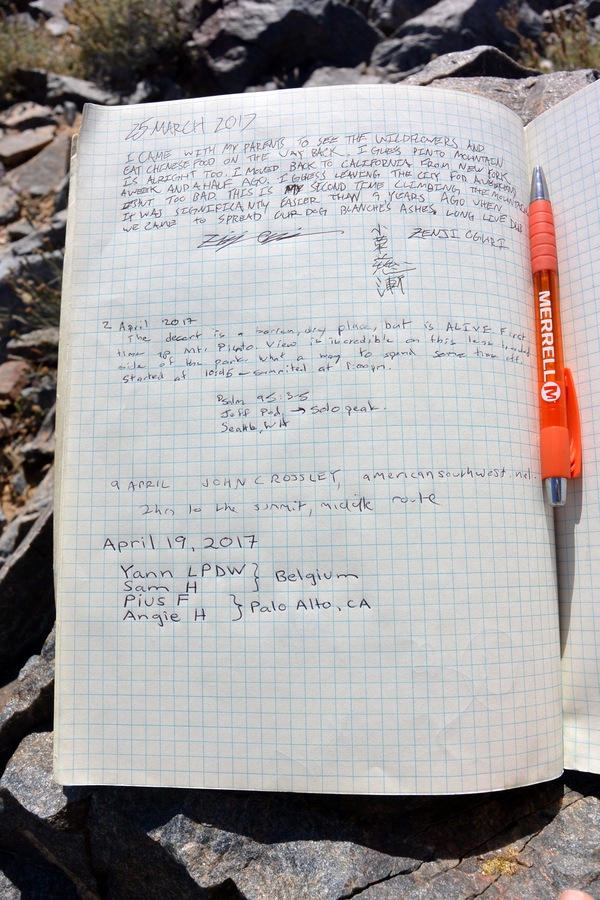 25 MARCH 2017
I CAME WITH MY PARENTS TO SEE THE WILDFLOWERS AND
EAT CHINESE FOOD ON THE WAY BACK. I GUESS PINTO MOUNTAIN
IS ALRIGHT TOO. I MOVED BACK TO CALIFORNIA FROM NEW YORK
A WEEK AND A HALF AGO. I GUESS LEAVING THE CITY FOR
ISNT TOO BAD. THIS IS MY SECOND TIME CLIMBING THE MOUNTAIN
IT WAS SIGNIFICANTLY EASIER THAN 9 YEARS AGO WHEN
WE CAME TO SPREAD OUR DOG BLANCHE'S ASHES. LONG LIVE
ZENJI OGURI
小栗
2 April 2017
The desert is a barren, dry place, but is ALIVE. First
time up Mt. Pinto. View is incredible on this less traveled
side of the park. What a way to spend some time off.
Started at 10:15 - summited at 1:00pm.
Psalm 95:3-5
Jeff Pod, → solo peak.
Seattle, WA
9 APRIL JOHN CROSSLEY, americansouthwest.net.
2hrs to the summit, middle route
April 19, 2017
Yann LPDW } Belgium
Sam H
Pius F } Palo Alto, CA
Angie H
MERRELL M